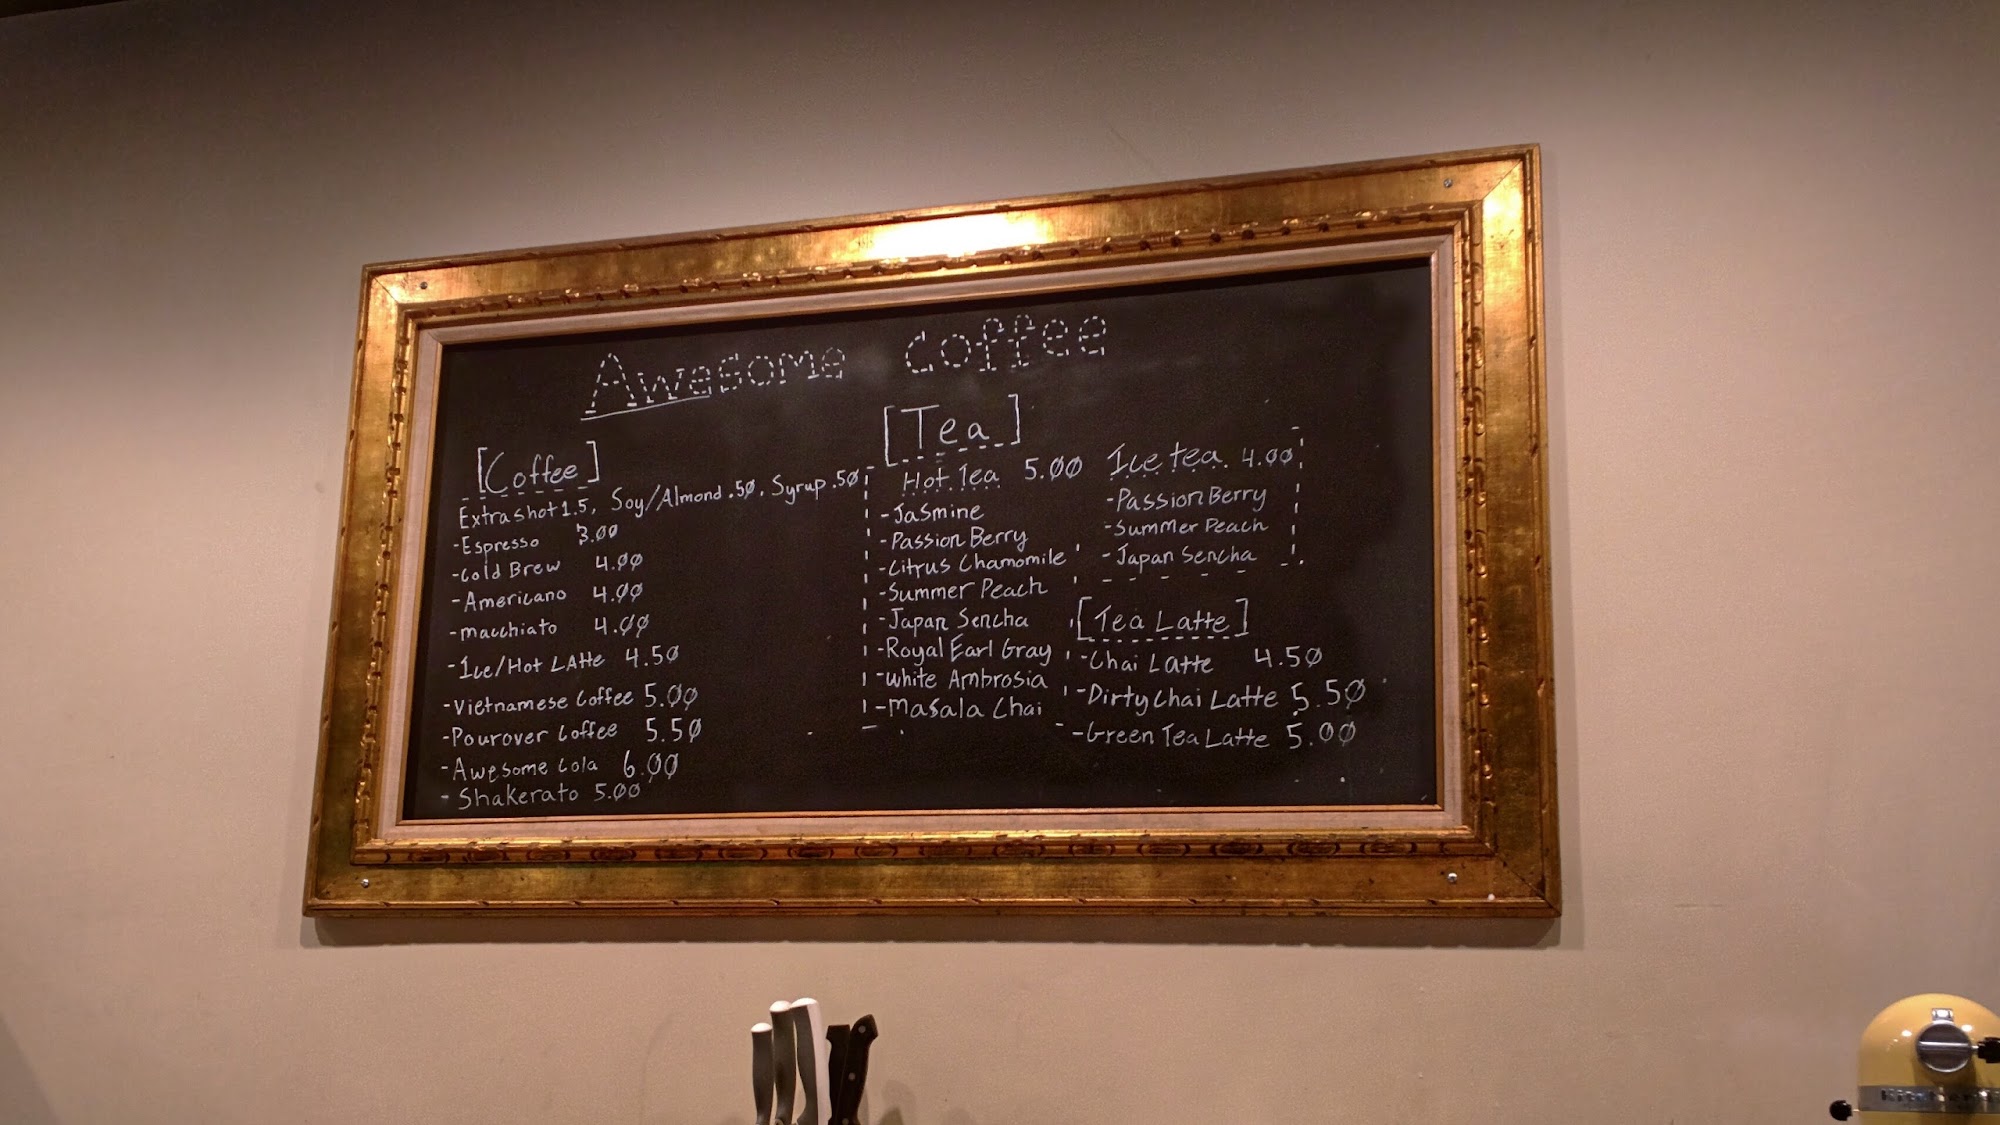 Awesome Coffee
[Coffee]
Extra shot 1.5, Soy/Almond .50, Syrup .50
-Espresso 3.00
-Cold Brew 4.00
-Americano 4.00
-macchiato 4.00
-Ice/Hot LAtte 4.50
-Vietnamese Coffee 5.00
-Pourover Coffee 5.50
-Awesome Cola 6.00
-Shakerato 5.00
[Tea]
Hot Tea 5.00
-Jasmine
-Passion Berry
-Citrus Chamomile
-Summer Peach
-Japan Sencha
-Royal Earl Gray
-white Ambrosia
-Masala Chai
Ice tea 4.00
-Passion Berry
-Summer Peach
-Japan Sencha
[Tea Latte]
-Chai Latte 4.50
-Dirty Chai Latte 5.50
-Green Tea Latte 5.00